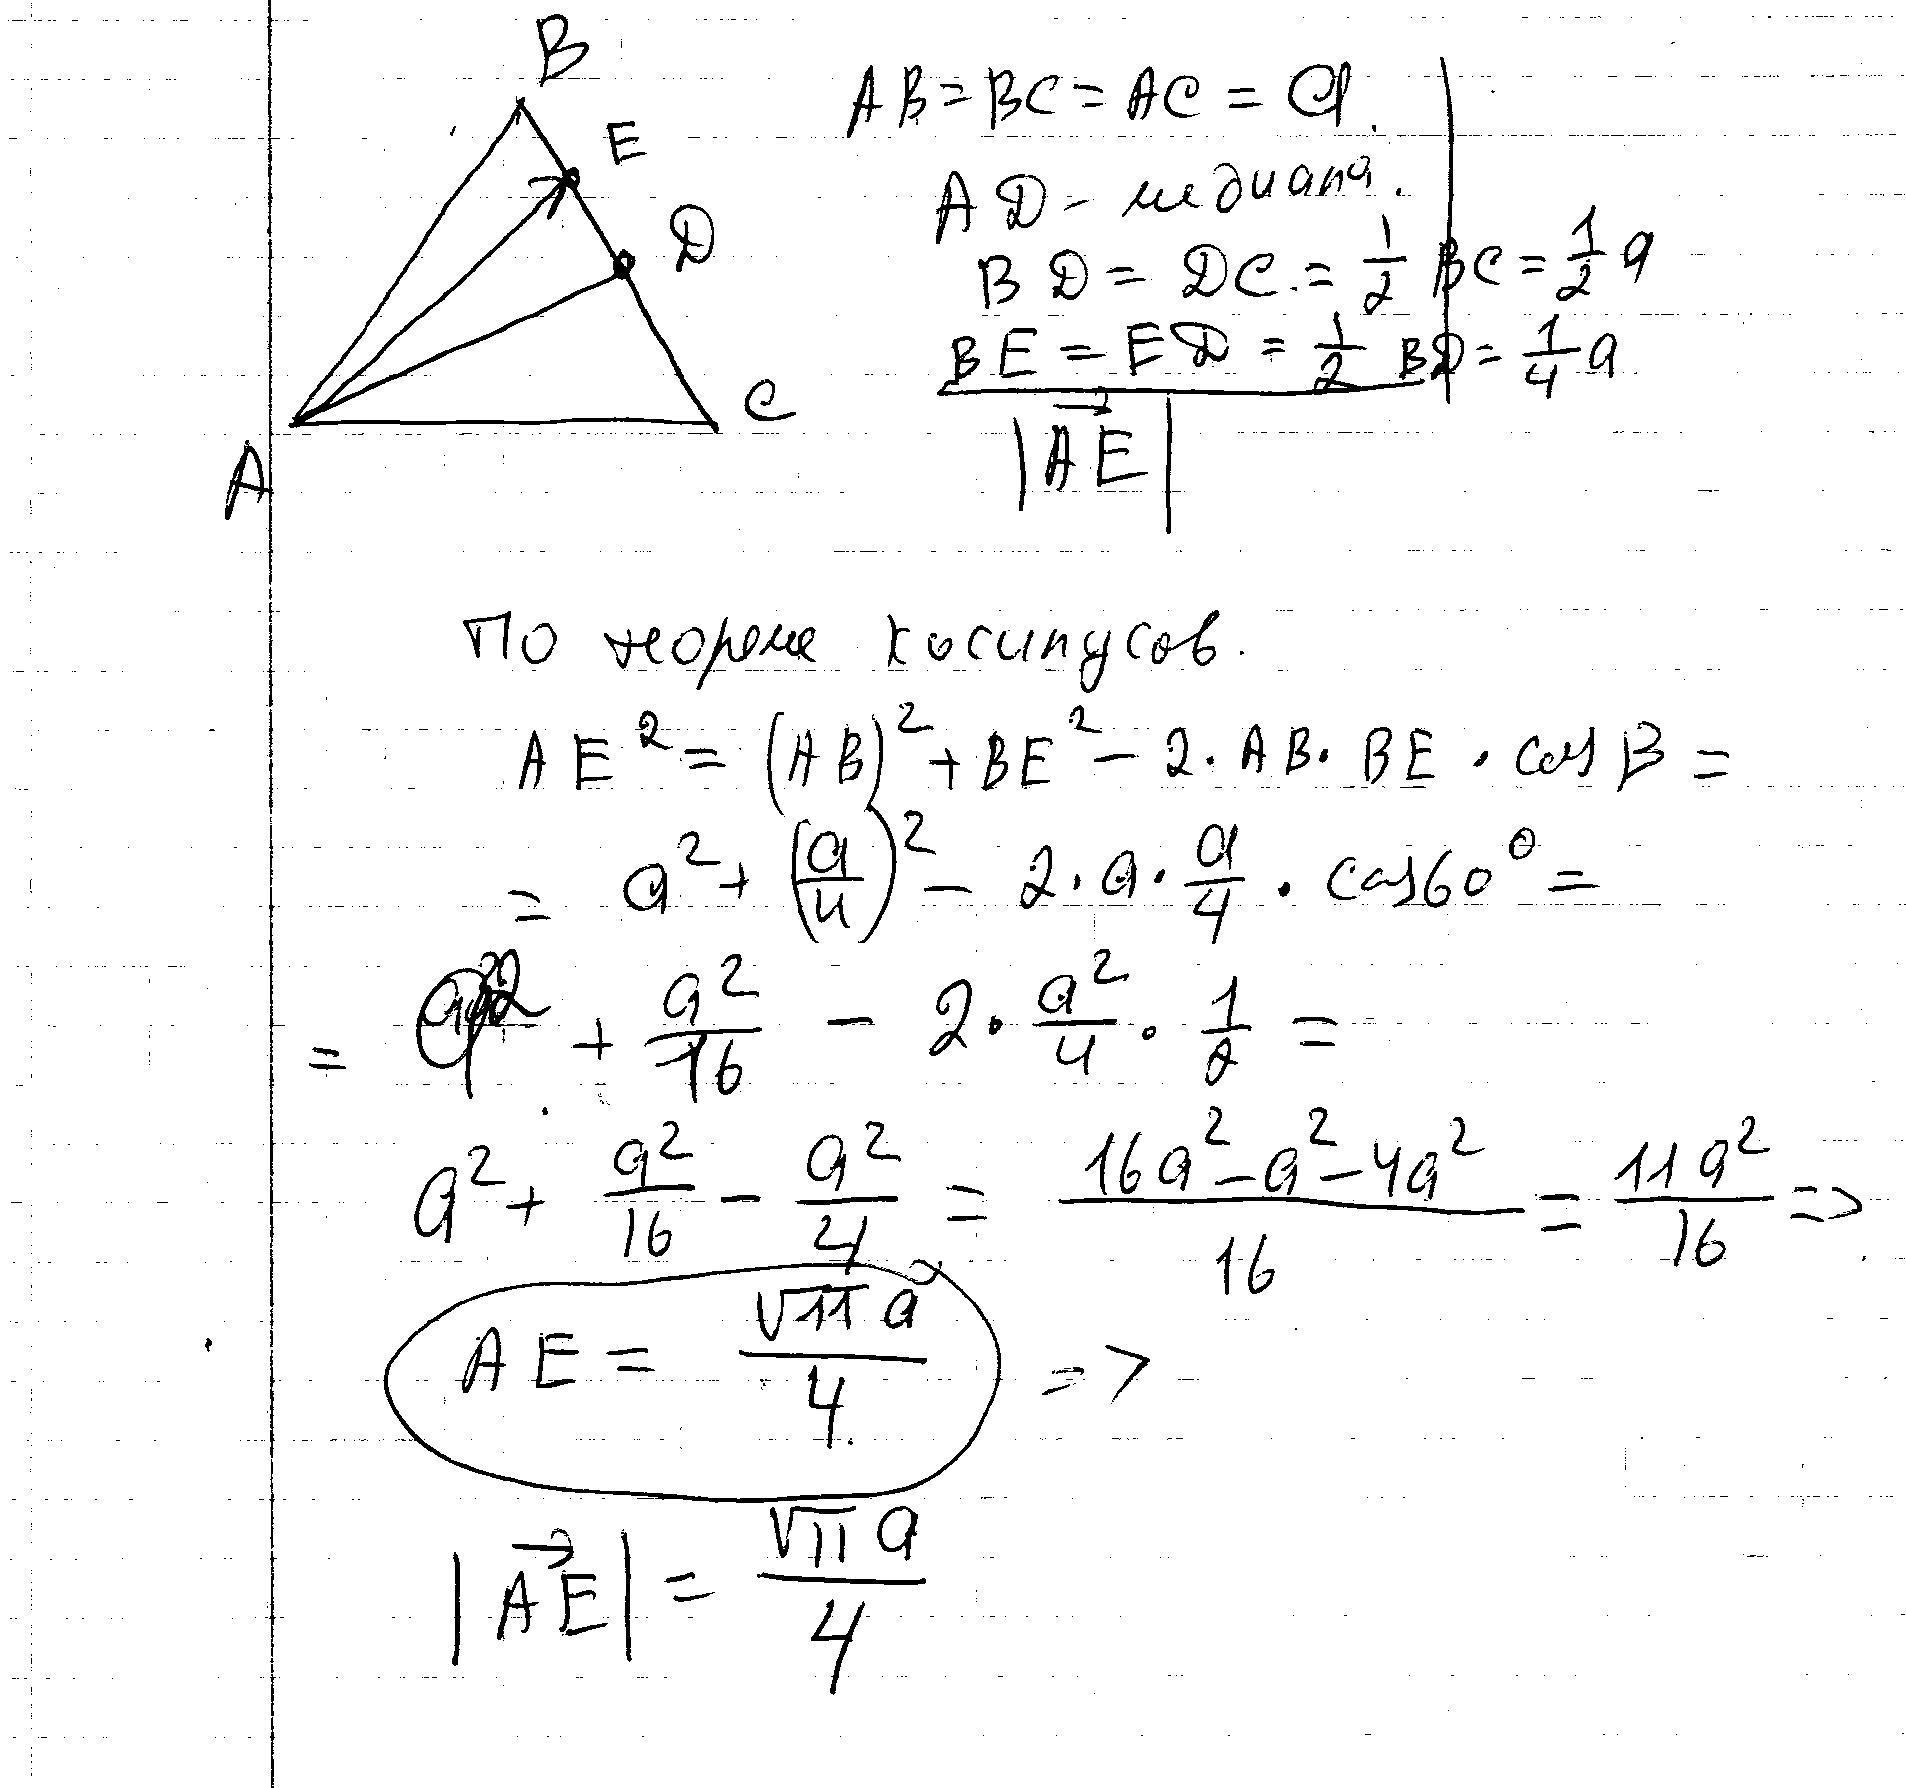 B
E
D
C
A
AB = BC = AC = a.
AD - медиана.
BD = DC. = 1/2 BC = 1/2 a
BE = ED = 1/2 BD = 1/4 a
|AE|
По теореме косинусов.
AE² = (AB)² + BE² - 2 · AB · BE · cos B =
= a² + (a/4)² - 2 · a · a/4 · cos 60° =
= a² + a²/16 - 2 · a²/4 · 1/2 =
a² + a²/16 - a²/4 = (16a² - a² - 4a²)/16 = 11a²/16 =>
AE = √11 a/4 =>
|AE| = √11 a/4